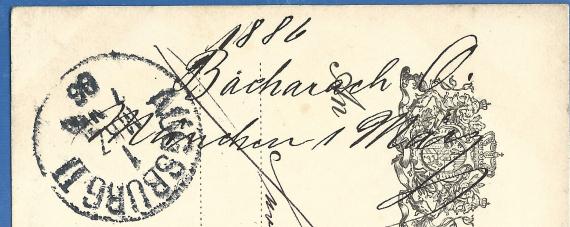 1886
Bacharach O.
München 1 März
An
AUGSBURG II
1
86